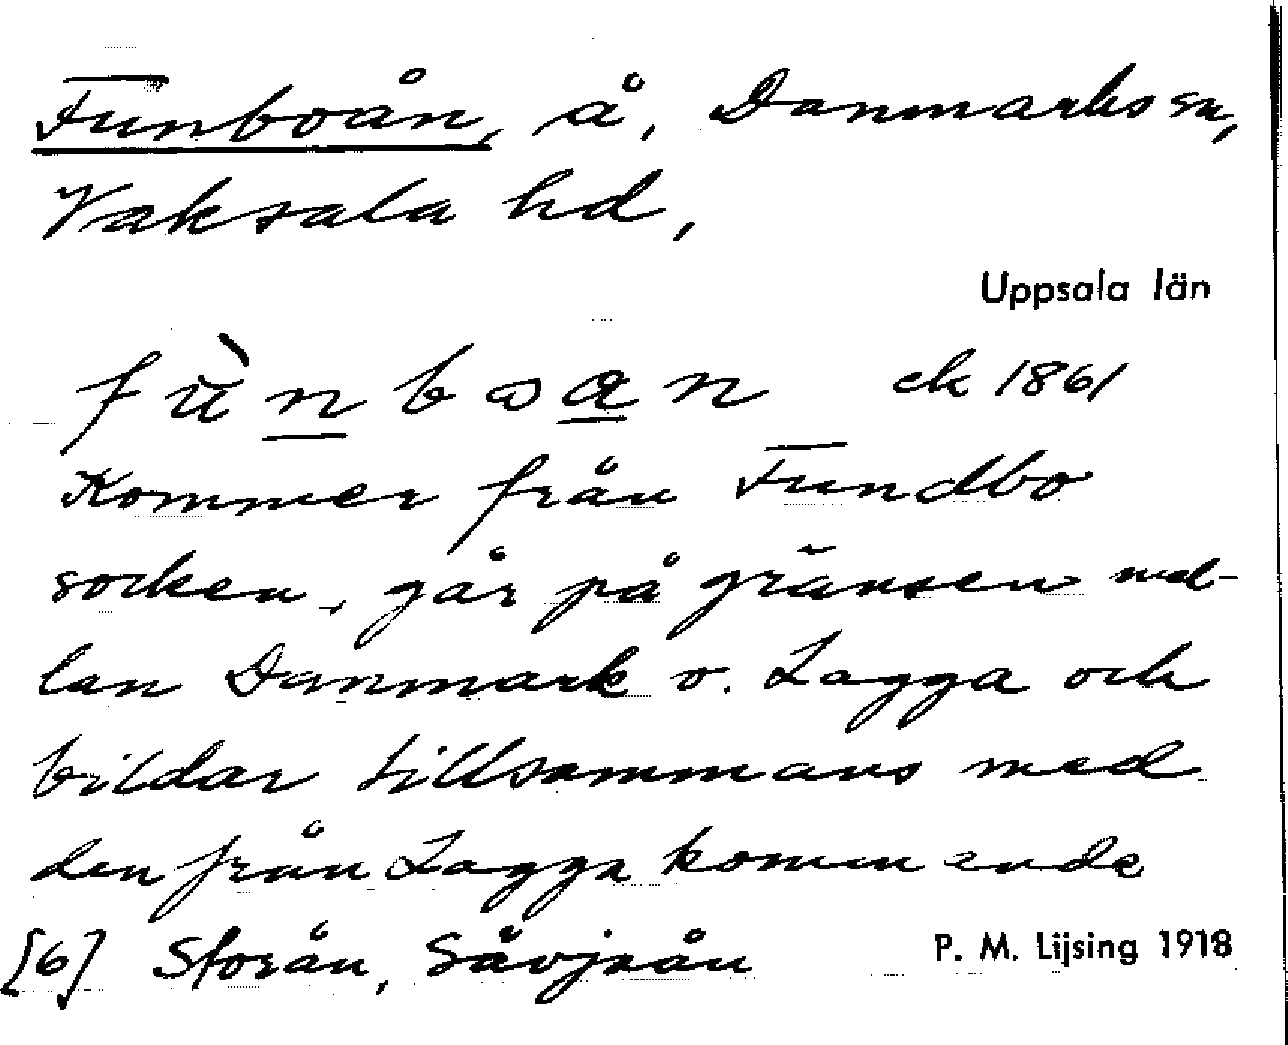 Funboån, å, Danmarks sn,
Vaksala hd,
Uppsala län
fùnboan ek 1861
Kommer från Fundbo
socken, går på gränsen mel-
lan Danmark o. Lagga och
bildar tillsammans med
den från Lagga kommande
[6] Storån, Sävjaån P. M. Lijsing 1918